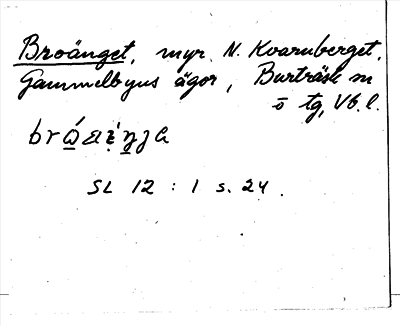 Broänget, myr N. Kvarnberget,
Gammelbyns ägor, Burträsk sn
o tg, Vb. l.
SL 12 : 1 s. 24.